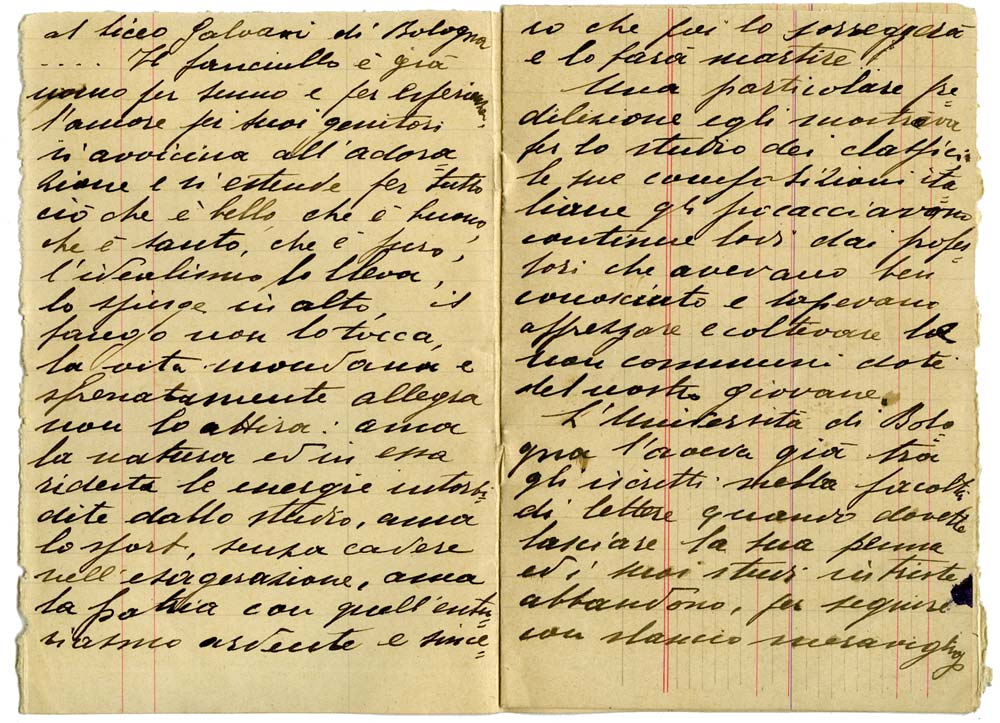 al liceo Galvani di Bologna
.... Il fanciullo è già
uomo per senno e per esperienza.
l'amore pei suoi genitori
si avvicina all'adora=
zione e si estende per tutto
ciò che è bello, che è buono,
che è santo, che è puro,
l'idealismo lo lleva,
lo spinge in alto, il
fango non lo tocca,
la vita mondana e
sfrenatamente allegra
non lo attira: ama
la natura ed in essa
ridesta le energie intorbi=
dite dallo studio, ama
lo sport, senza cadere
nell'esagerazione, ama
la patria con quell'entu=
siasmo ardente e since=
ro che poi lo sorreggerà
e lo farà martire!
Una particolare pre
dilizione egli mostrava
per lo studio dei classici:
le sue composizioni ita
liane gli procacciavano
continue lodi dai profes=
sori che avevano ben
conosciuto e sapevano
apprezzare e coltivare le
non communi doti
del nostro giovane.
L'Università di Bolo
gna l'aveva già tra
gli iscritti nella facoltà
di lettere quando dovette
lasciare la sua penna
ed i suoi studi in triste
abbandono, per seguire
con slancio meraviglio